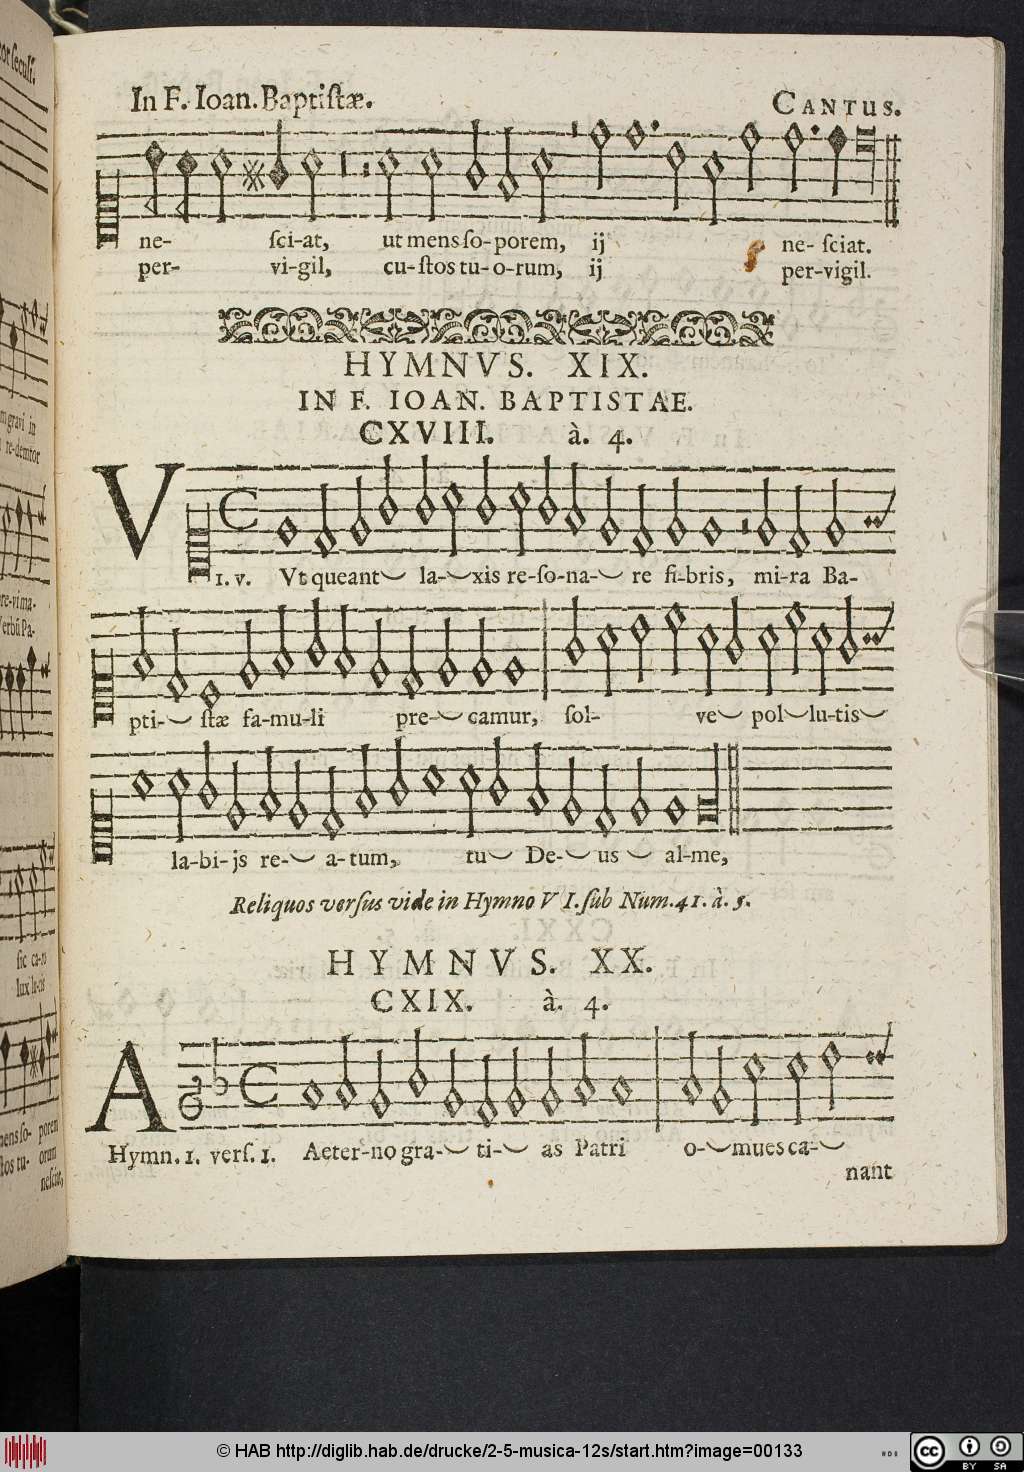 In F. Ioan. Baptiſtæ.
CANTUS.
ne- ſci-at, ut mens ſo-porem, ij ne- ſciat.
per- vi-gil, cu-ſtos tu-o-rum, ij per-vigil.
HYMNVS. XIX.
IN F. IOAN. BAPTISTAE.
CXVIII. à. 4.
V
1. v. Vt queant la-xis re-ſo-na- re fi-bris, mi-ra Ba-
pti- ſtæ fa-mu-li pre- camur, ſol- ve pol-lu-tis
la-bi-js re- a-tum, tu De- us al-me,
Reliquos verſus vide in Hymno V I. ſub Num. 41. à. 5.
HYMNVS. XX.
CXIX. à. 4.
A
Hymn. 1. verſ. 1. Aeter-no gra- ti- as Patri o- mues ca-
nant
© HAB http://diglib.hab.de/drucke/2-5-musica-12s/start.htm?image=00133
cc BY SA